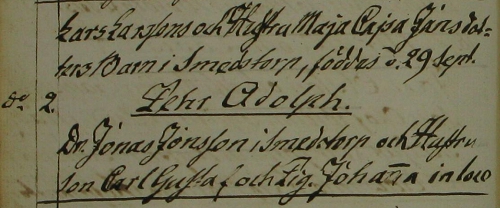 Lars Larssons och Hustru Maja Cajsa Jöns dot-
ters Barn i Smedstorp, föddes d. 29 sept.
do 2. Pehr Adolph.
Dr. Jonas Jonsson i Smedstorp och Hustru
son Carl Gustaf och Pig. Johanna in loco